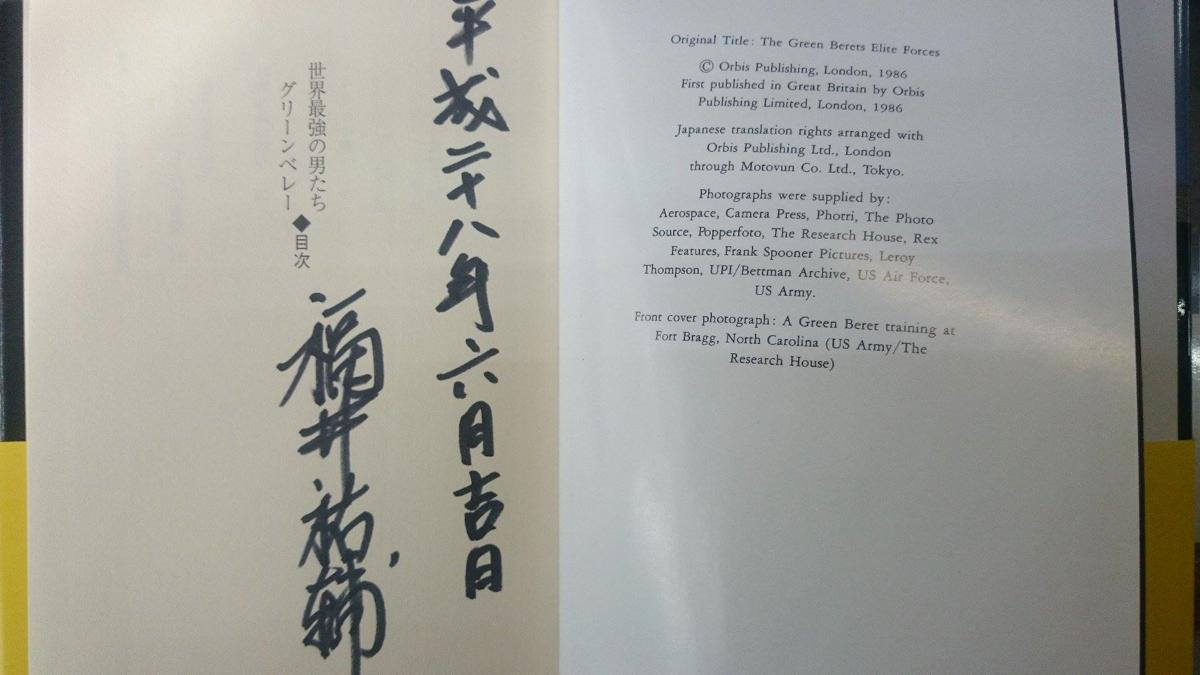 平成二十八年六月吉日
世界最強の男たち
グリーンベレー◆目次
福井祐輔
Original Title: The Green Berets Elite Forces
© Orbis Publishing, London, 1986
First published in Great Britain by Orbis
Publishing Limited, London, 1986
Japanese translation rights arranged with
Orbis Publishing Ltd., London
through Motovun Co. Ltd., Tokyo.
Photographs were supplied by:
Aerospace, Camera Press, Photri, The Photo
Source, Popperfoto, The Research House, Rex
Features, Frank Spooner Pictures, Leroy
Thompson, UPI/Bettman Archive, US Air Force,
US Army.
Front cover photograph: A Green Beret training at
Fort Bragg, North Carolina (US Army/The
Research House)